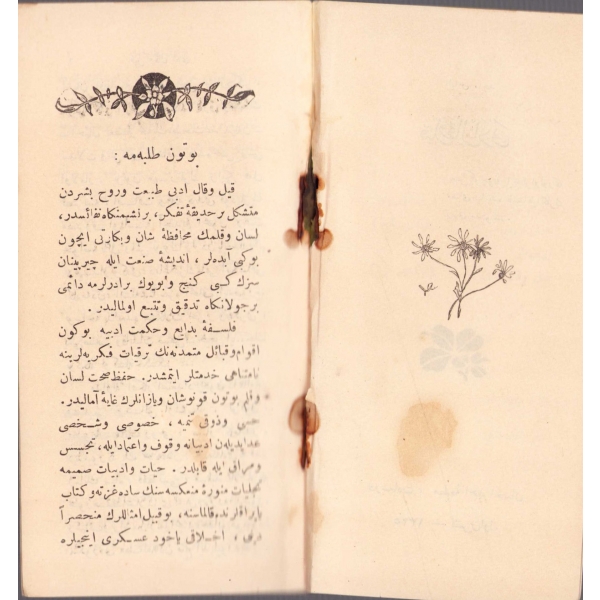 بوتون طلبه‌مه :
قيل وقال ادبى طبيعت وروح بشردن
متشكل بر حديقهٔ تفكر، بر نشيمنكاه نفائسدر،
لسان و قلمك محافظهٔ شان وبكارتى ايچون
بوكبى آبده‌لر ، انديشهٔ صنعت ايله چيربينان
سزك كبى كنج و بويوك برادرلرمه دائمى
بر جولانكاه تدقيق وتتبع اولماليدر .
فلسفهٔ بدايع و حكمت ادبيه بوكون
اقوام وقبائل متمدنه‌نك ترقيات فكريه‌لرينه
نامتناهى خدمتلر ايتمشدر. حفظ صحت لسان
وقلم بوتون قونوشان ويازانلرك غايهٔ آماليدر.
حسى وذوقى تنميه ، خصوصى وشخصى
وقوف واعتماد ايله، تجسس
ايله قابلدر . حيات وادبيات صميمه
منوره منعكسه‌سنك ساده غزته وكتاب
قالماسنه، بوقبيل امثاللرك منحصراً
اخلاقى ياخود عسكرى انجيلره